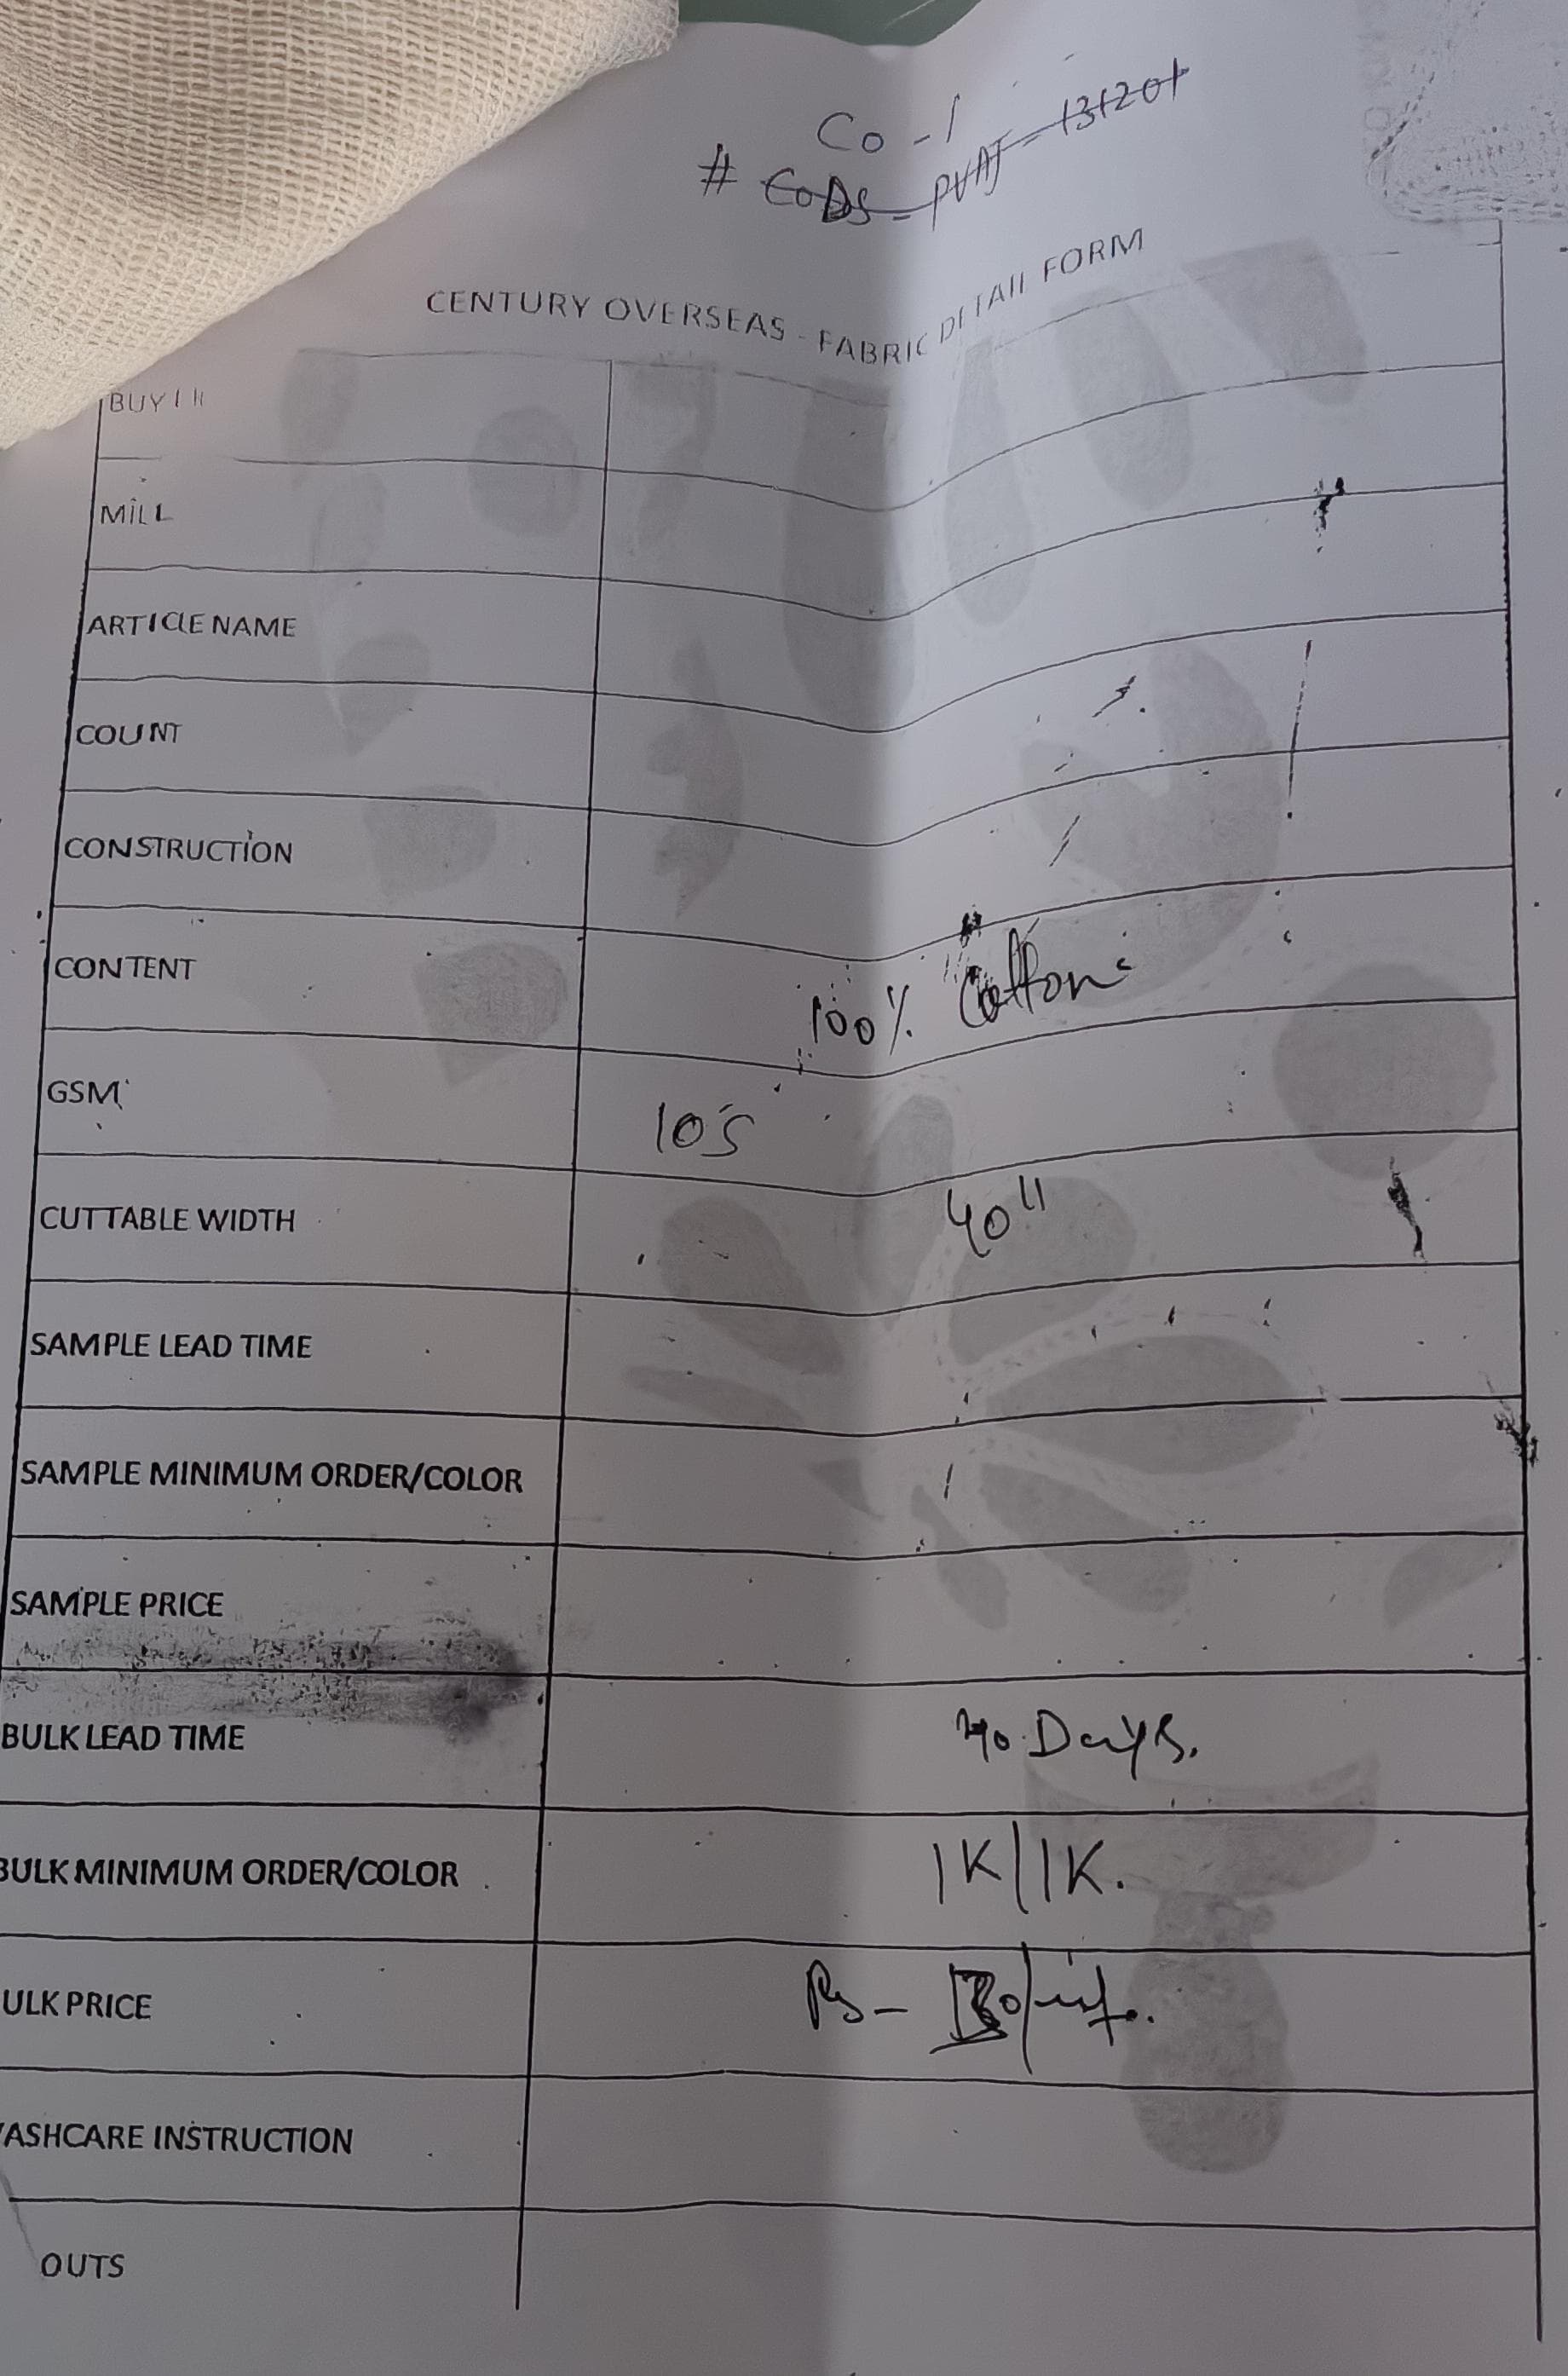 Co - 1
# CODS - PVAJ - 131201
CENTURY OVERSEAS - FABRIC DETAIL FORM
BUYER
MILL
ARTICLE NAME
COUNT
CONSTRUCTION
CONTENT 100% Cotton
GSM 10'S
CUTTABLE WIDTH 40"
SAMPLE LEAD TIME
SAMPLE MINIMUM ORDER/COLOR
SAMPLE PRICE
BULK LEAD TIME Days.
BULK MINIMUM ORDER/COLOR 1K/1K.
ULK PRICE Rs -
ASHCARE INSTRUCTION
OUTS